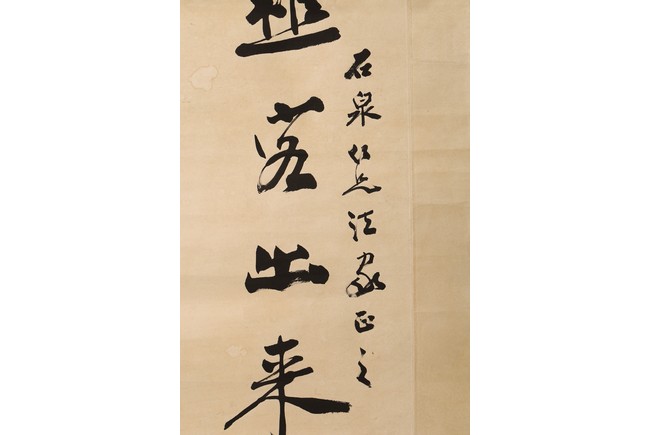 石泉仁兄法家正之
若出来